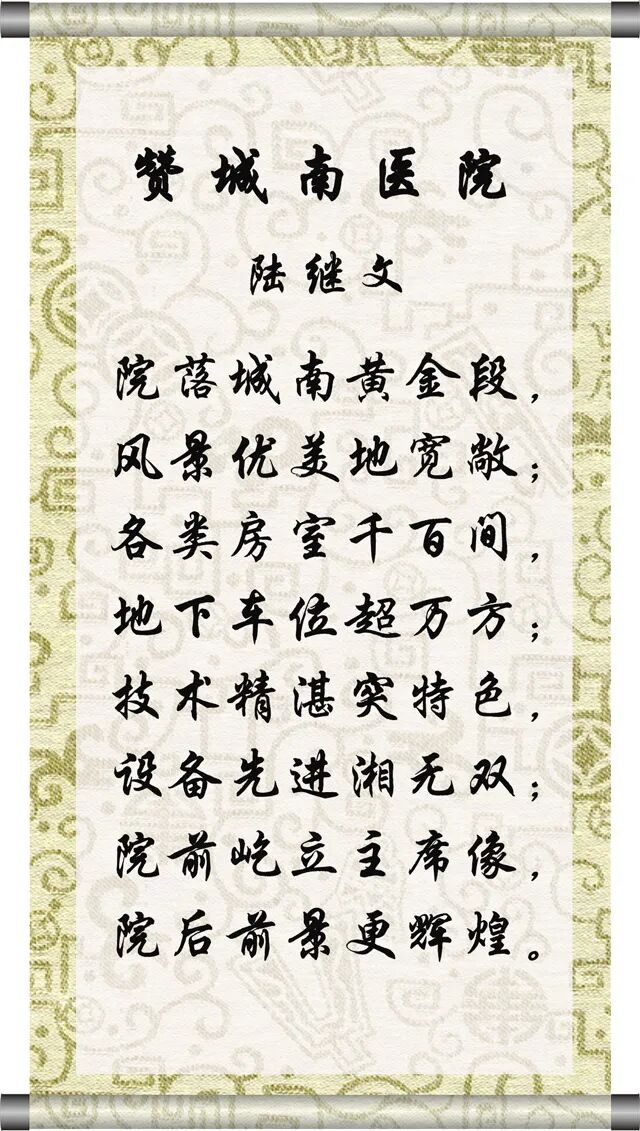 赞城南医院
陆继文
院落城南黄金段，
风景优美地宽敞；
各类房室千百间，
地下车位超万方；
技术精湛突特色，
设备先进湘无双；
院前屹立主席像，
院后前景更辉煌。